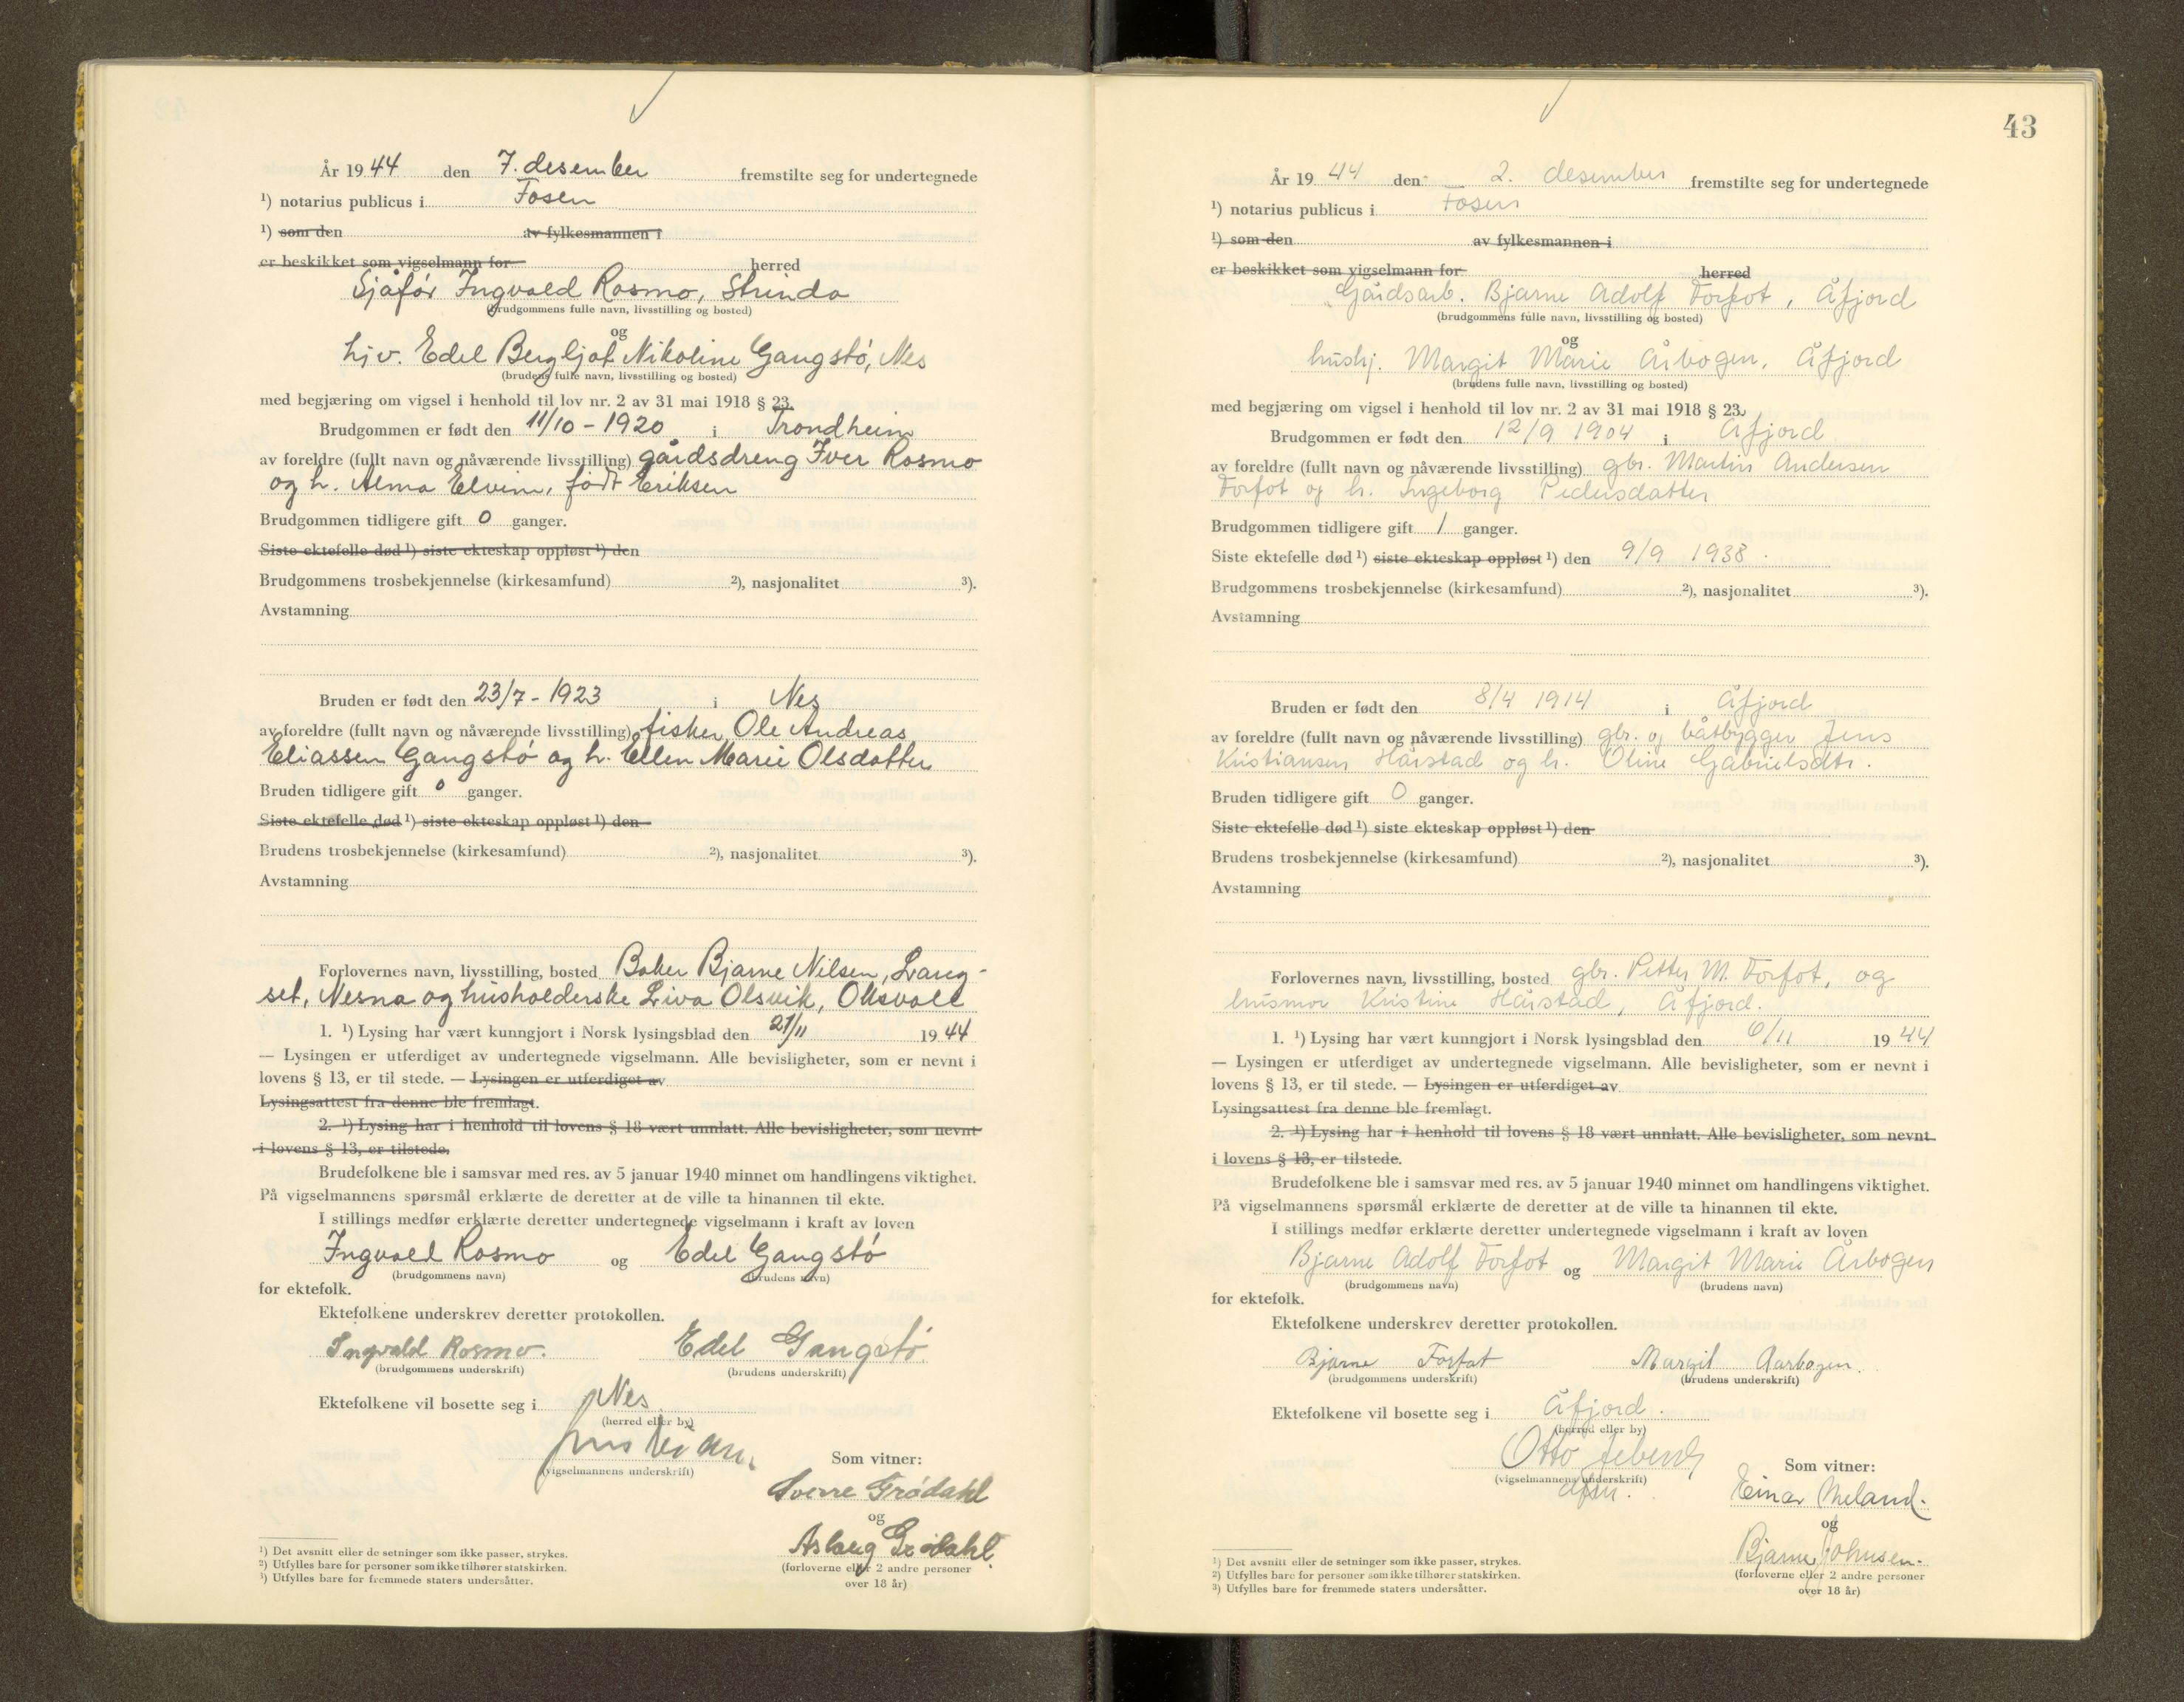 År 1944 den 7. desember fremstilte seg for undertegnede
¹) notarius publicus i Fosen
¹) som den av fylkesmannen i
er beskikket som vigselmann for herred
Sjåfør Ingvald Rosmo, Strinda
(brudgommens fulle navn, livsstilling og bosted)
og
hj.v. Edel Bergljot Nikoline Gangstø, Nes
(brudens fulle navn, livsstilling og bosted)
med begjæring om vigsel i henhold til lov nr. 2 av 31 mai 1918 § 23.
Brudgommen er født den 11/10 - 1920 i Trondheim
av foreldre (fullt navn og nåværende livsstilling) gårdsdreng Iver Rosmo
og h. Alma Elvine, født Eriksen
Brudgommen tidligere gift 0 ganger.
Siste ektefelle død ¹) siste ekteskap oppløst ¹) den
Brudgommens trosbekjennelse (kirkesamfund) ²), nasjonalitet ³).
Avstamning
Bruden er født den 23/7 - 1923 i Nes
av foreldre (fullt navn og nåværende livsstilling) fisker Ole Andreas
Eliassen Gangstø og h. Ellen Marie Olsdatter
Bruden tidligere gift 0 ganger.
Siste ektefelle død ¹) siste ekteskap oppløst ¹) den
Brudens trosbekjennelse (kirkesamfund) ²), nasjonalitet ³).
Avstamning
Forlovernes navn, livsstilling, bosted Baker Bjarne Nilsen, Lang-
set, Nesna og husholderske Liva Olsvik, Oksvoll
1. ¹) Lysing har vært kunngjort i Norsk lysingsblad den 21/11 1944
— Lysingen er utferdiget av undertegnede vigselmann. Alle bevisligheter, som er nevnt i
lovens § 13, er til stede. — Lysingen er utferdiget av
Lysingsattest fra denne ble fremlagt.
2. ¹) Lysing har i henhold til lovens § 18 vært unnlatt. Alle bevisligheter, som nevnt
i lovens § 13, er tilstede.
Brudefolkene ble i samsvar med res. av 5 januar 1940 minnet om handlingens viktighet.
På vigselmannens spørsmål erklærte de deretter at de ville ta hinannen til ekte.
I stillings medfør erklærte deretter undertegnede vigselmann i kraft av loven
Ingvald Rosmo og Edel Gangstø
(brudgommens navn) (brudens navn)
for ektefolk.
Ektefolkene underskrev deretter protokollen.
Ingvald Rosmo. Edel Gangstø.
(brudgommens underskrift) (brudens underskrift)
Ektefolkene vil bosette seg i Nes
(herred eller by)
(vigselmannens underskrift)
Som vitner:
Sverre Grødahl
og
Aslaug Grødahl.
(forloverne eller 2 andre personer
over 18 år)
¹) Det avsnitt eller de setninger som ikke passer, strykes.
²) Utfylles bare for personer som ikke tilhører statskirken.
³) Utfylles bare for fremmede staters undersåtter.
43
År 1944 den 2. desember fremstilte seg for undertegnede
¹) notarius publicus i Fosen
¹) som den av fylkesmannen i
er beskikket som vigselmann for herred
Gårdsarb. Bjarne Adolf Forfot, Åfjord
(brudgommens fulle navn, livsstilling og bosted)
og
hushj. Margit Marie Årbogen, Åfjord
(brudens fulle navn, livsstilling og bosted)
med begjæring om vigsel i henhold til lov nr. 2 av 31 mai 1918 § 23.
Brudgommen er født den 12/9 1904 i Åfjord
av foreldre (fullt navn og nåværende livsstilling) gbr. Martin Andersen
Forfot og h. Ingeborg Pedersdatter
Brudgommen tidligere gift 1 ganger.
Siste ektefelle død ¹) siste ekteskap oppløst ¹) den 9/9 1938.
Brudgommens trosbekjennelse (kirkesamfund) ²), nasjonalitet ³).
Avstamning
Bruden er født den 8/4 1914 i Åfjord
av foreldre (fullt navn og nåværende livsstilling) gbr. og båtbygger Jens
Kristiansen Hårstad og h. Oline Gabrielsdtr.
Bruden tidligere gift 0 ganger.
Siste ektefelle død ¹) siste ekteskap oppløst ¹) den
Brudens trosbekjennelse (kirkesamfund) ²), nasjonalitet ³).
Avstamning
Forlovernes navn, livsstilling, bosted gbr. Petter M. Forfot, og
husmor Kristine Hårstad, Åfjord.
1. ¹) Lysing har vært kunngjort i Norsk lysingsblad den 6/11 1944
— Lysingen er utferdiget av undertegnede vigselmann. Alle bevisligheter, som er nevnt i
lovens § 13, er til stede. — Lysingen er utferdiget av
Lysingsattest fra denne ble fremlagt.
2. ¹) Lysing har i henhold til lovens § 18 vært unnlatt. Alle bevisligheter, som nevnt
i lovens § 13, er tilstede.
Brudefolkene ble i samsvar med res. av 5 januar 1940 minnet om handlingens viktighet.
På vigselmannens spørsmål erklærte de deretter at de ville ta hinannen til ekte.
I stillings medfør erklærte deretter undertegnede vigselmann i kraft av loven
Bjarne Adolf Forfot og Margit Marie Årbogen
(brudgommens navn) (brudens navn)
for ektefolk.
Ektefolkene underskrev deretter protokollen.
Bjarne Forfot Margit Aarbogen.
(brudgommens underskrift) (brudens underskrift)
Ektefolkene vil bosette seg i Åfjord.
(herred eller by)
Otto
(vigselmannens underskrift)
Som vitner:
Einar Meland.
og
Bjarne Johnsen.
(forloverne eller 2 andre personer
over 18 år)
¹) Det avsnitt eller de setninger som ikke passer, strykes.
²) Utfylles bare for personer som ikke tilhører statskirken.
³) Utfylles bare for fremmede staters undersåtter.